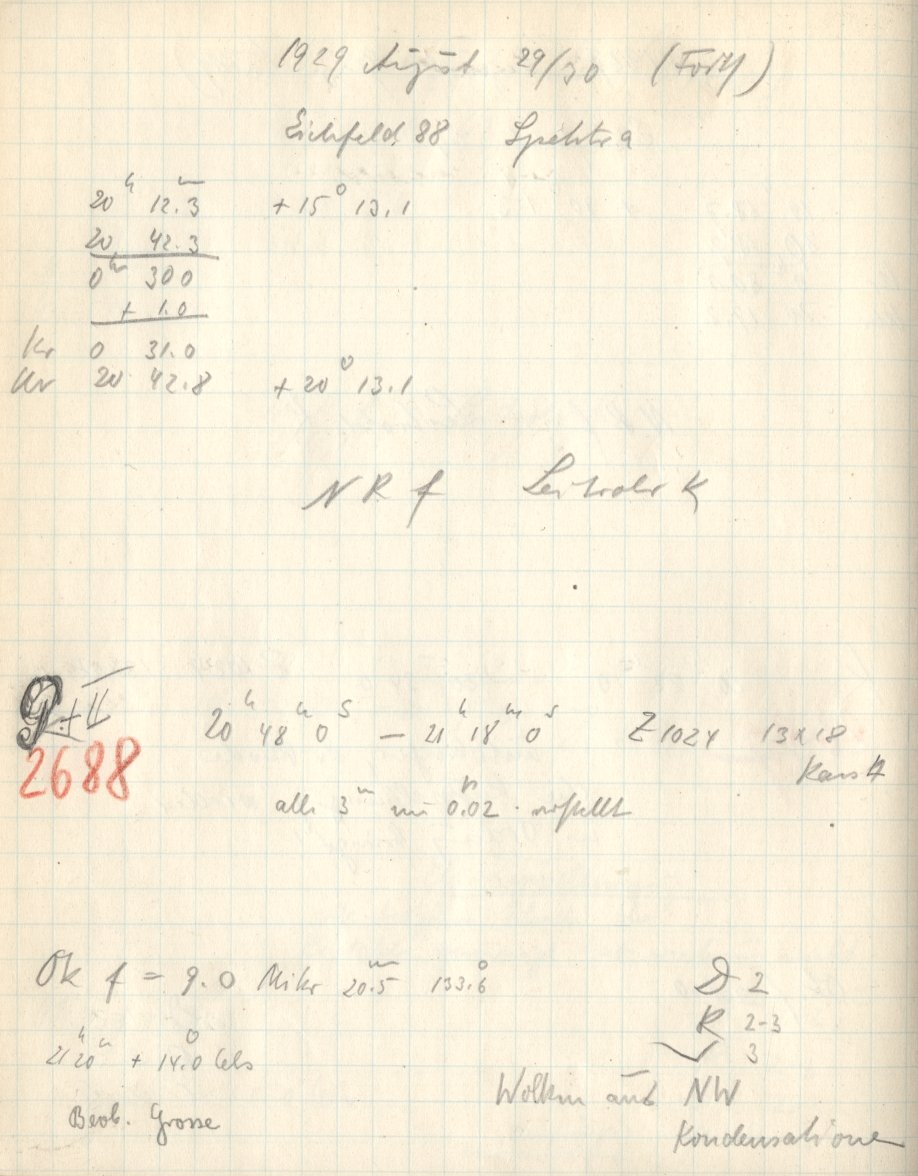 1929 August 29/30 (Forts)
Eichfeld 88 Spektra
20h 12m.3 +15° 13.1
20 42.3
0h 30 0
+ 1.0
Kr 0 31.0
Ur 20 42.8 +20° 13.1
N R f Leitrohr K
2688
20h 48m 0s — 21h 18m 0s Z 1024 13x18
Kass
alle 3m um 0.02 verstellt
Ok f = 9.0 Mikr 20m.5 133°.6
D 2
R 2-3
3
21h 20m + 14°.0 Cels
Wolken aus NW
Beob. Grosse
Kondensationen